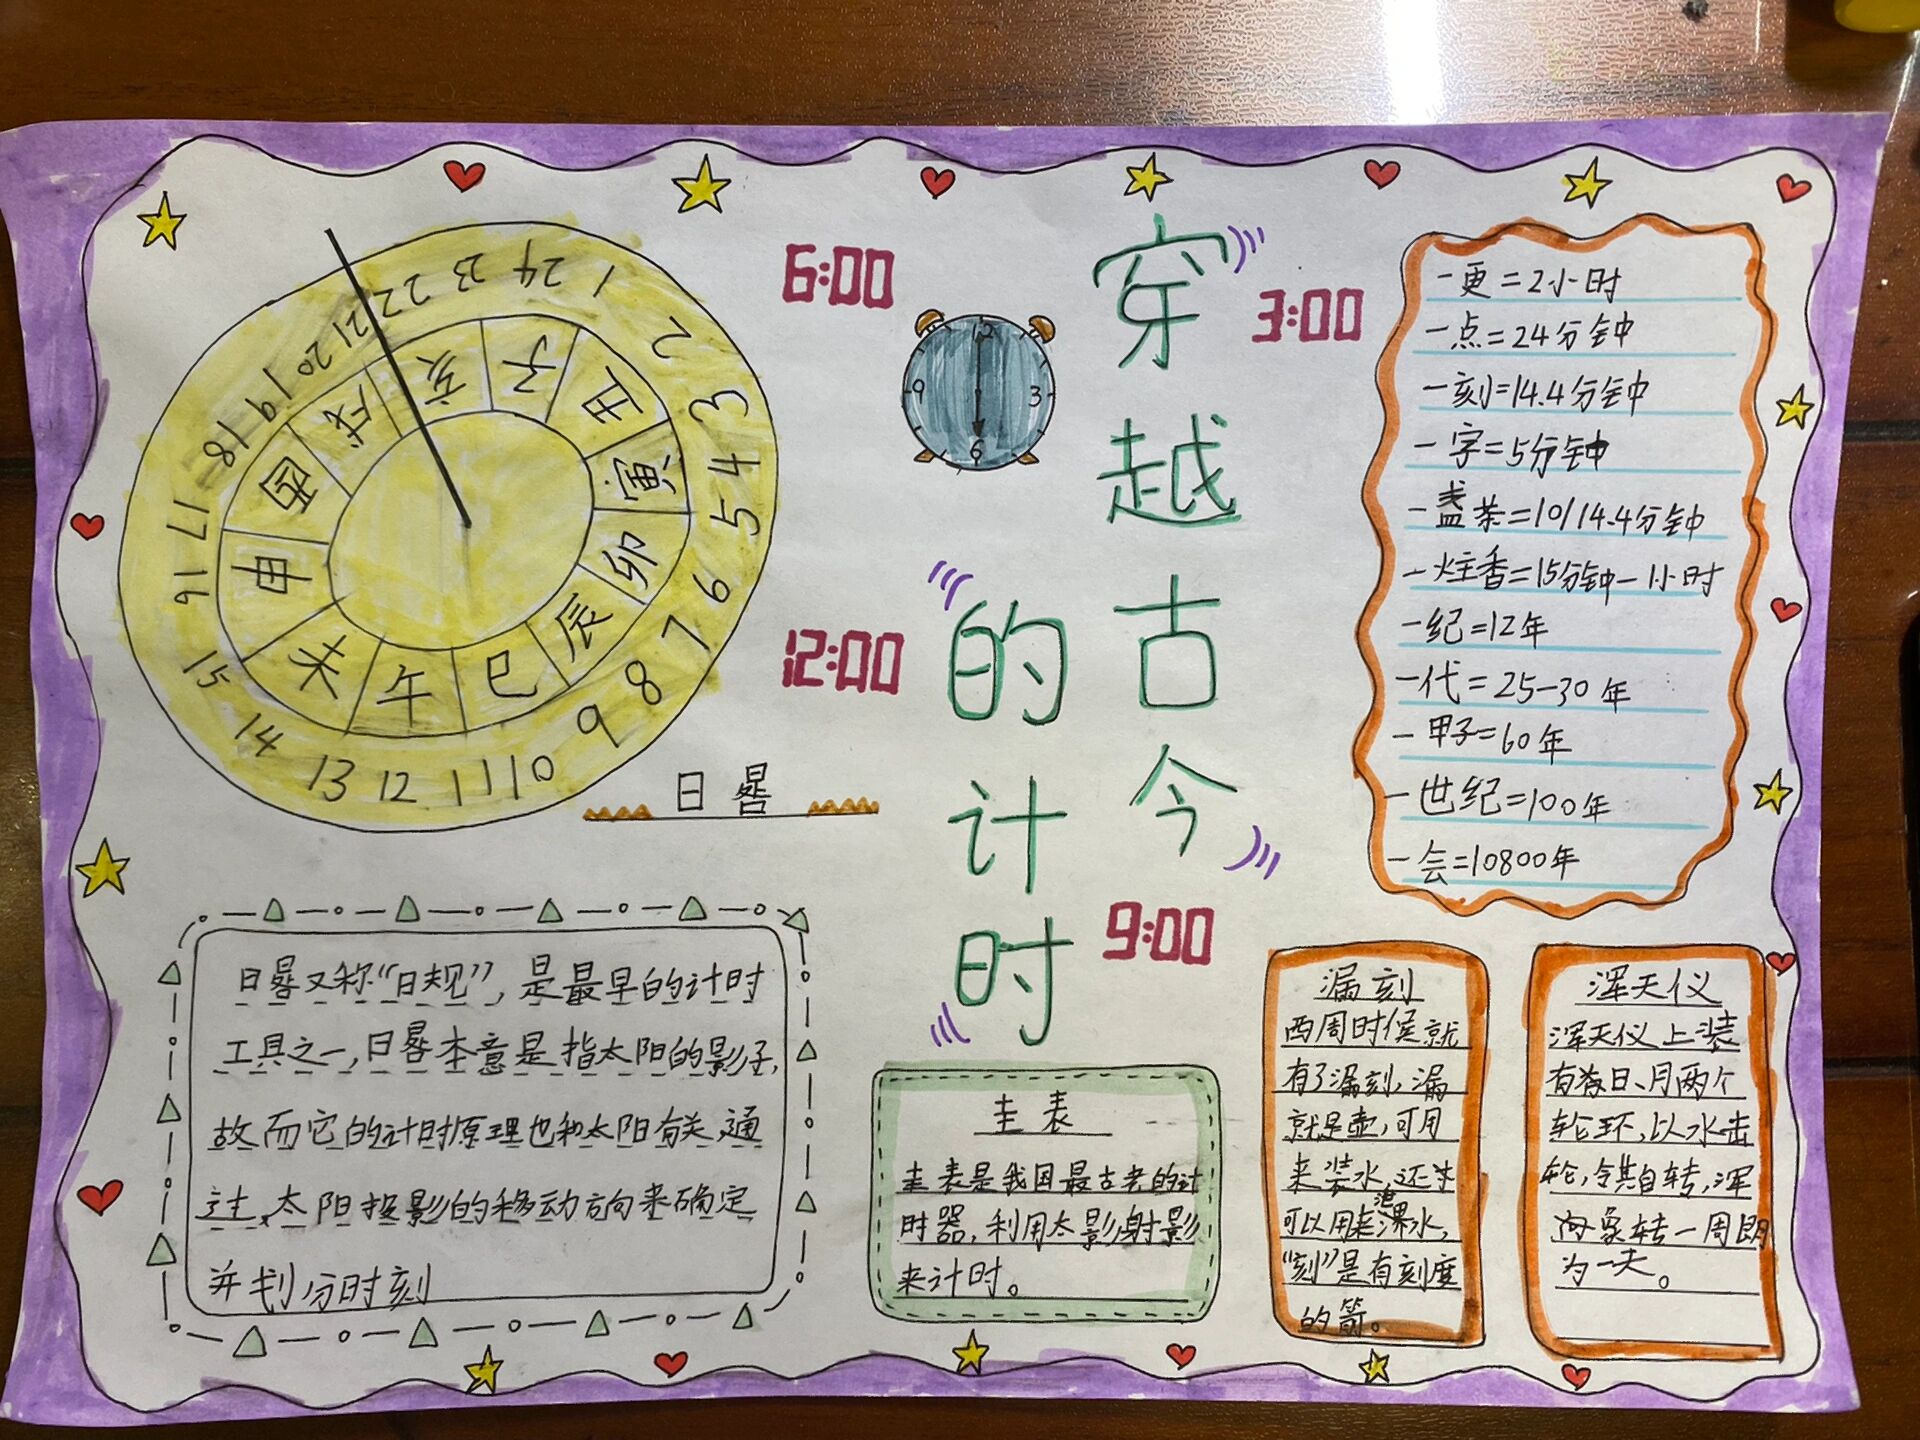 穿越古今
的计时
6:00
3:00
12:00
9:00
12
3
6
9
1
2
3
4
5
6
7
8
9
10
11
12
13
14
15
16
17
18
19
20
21
22
23
24
子
丑
寅
卯
辰
巳
午
未
申
酉
戌
亥
日晷
一更=2小时
一点=24分钟
一刻=14.4分钟
一字=5分钟
一盏茶=10/14.4分钟
一炷香=15分钟-1小时
一纪=12年
一代=25-30年
一甲子=60年
一世纪=100年
一会=10800年
日晷又称“日规”,是最早的计时
工具之一,日晷本意是指太阳的影子,
故而它的计时原理也和太阳有关,通
过太阳投影的移动方向来确定
并划分时刻
圭表
圭表是我国最古老的计
时器,利用太影射影
来计时。
漏刻
西周时候就
有了漏刻,漏
就是壶,可用
来装水,还
可以用来水,
“刻”是有刻度
的箭。
浑天仪
浑天仪上装
有日、月两个
轮环,以水击
轮,令其自转,浑
象转一周
为一天。